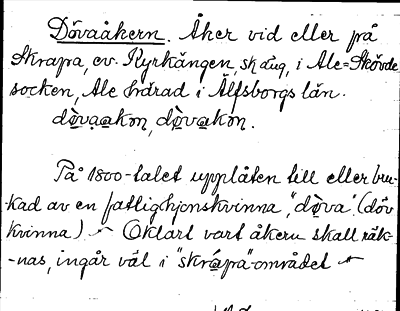 Dövaåkern. Åker vid eller på
Skrapa, ev. Kyrkängen, sk dug, i Ale-Skövde
socken, Ale härad i Älfsborgs län.
dòvaakon, dòvakon.
På 1800-talet upplåten till eller bru-
kad av en fattighjonskvinna, "döva" (döv
kvinna) Oklart vart åkern skall räk-
-nas, ingår väl i "skrápa"-området